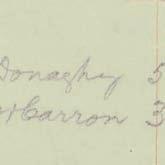 Donaghy 5
McCarron 3